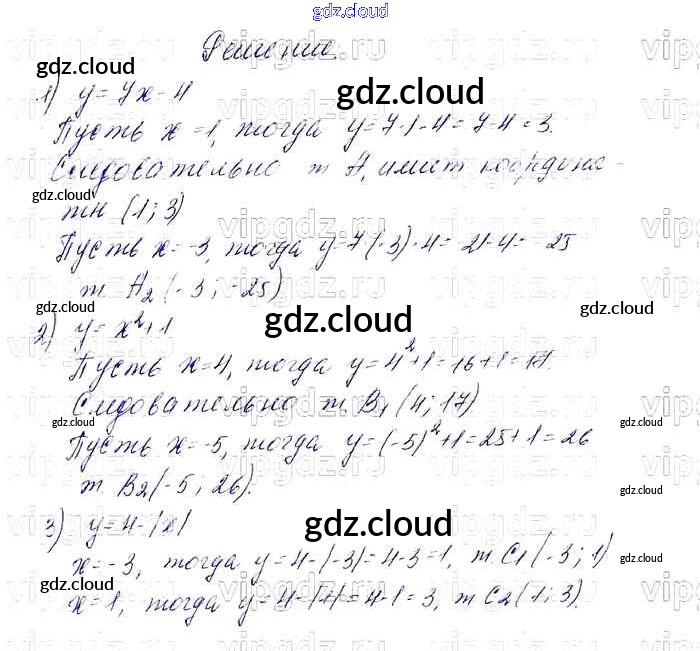 gdz.cloud
Решение
1) y = 7x - 4
gdz.cloud
gdz.cloud
Пусть x = 1, тогда y = 7·1 - 4 = 7 - 4 = 3.
Следовательно т A₁ имеет координа-
gdz.cloud
ты (1; 3)
Пусть x = -3, тогда y = 7·(-3) - 4 = -21 - 4 = -25
т. A₂ (-3; -25)
gdz.cloud
gdz.cloud
gdz.cloud
2) y = x² + 1
Пусть x = 4, тогда y = 4² + 1 = 16 + 1 = 17.
Следовательно т. B₁ (4; 17)
gdz.cloud
gdz.cloud
Пусть x = -5, тогда y = (-5)² + 1 = 25 + 1 = 26
т. B₂ (-5; 26).
gdz.cloud
3) y = 4 - |x|
gdz.cloud
x = -3, тогда y = 4 - |-3| = 4 - 3 = 1, т. C₁ (-3; 1)
gdz.cloud
gdz.cloud
x = 1, тогда y = 4 - |1| = 4 - 1 = 3, т C₂ (1; 3).